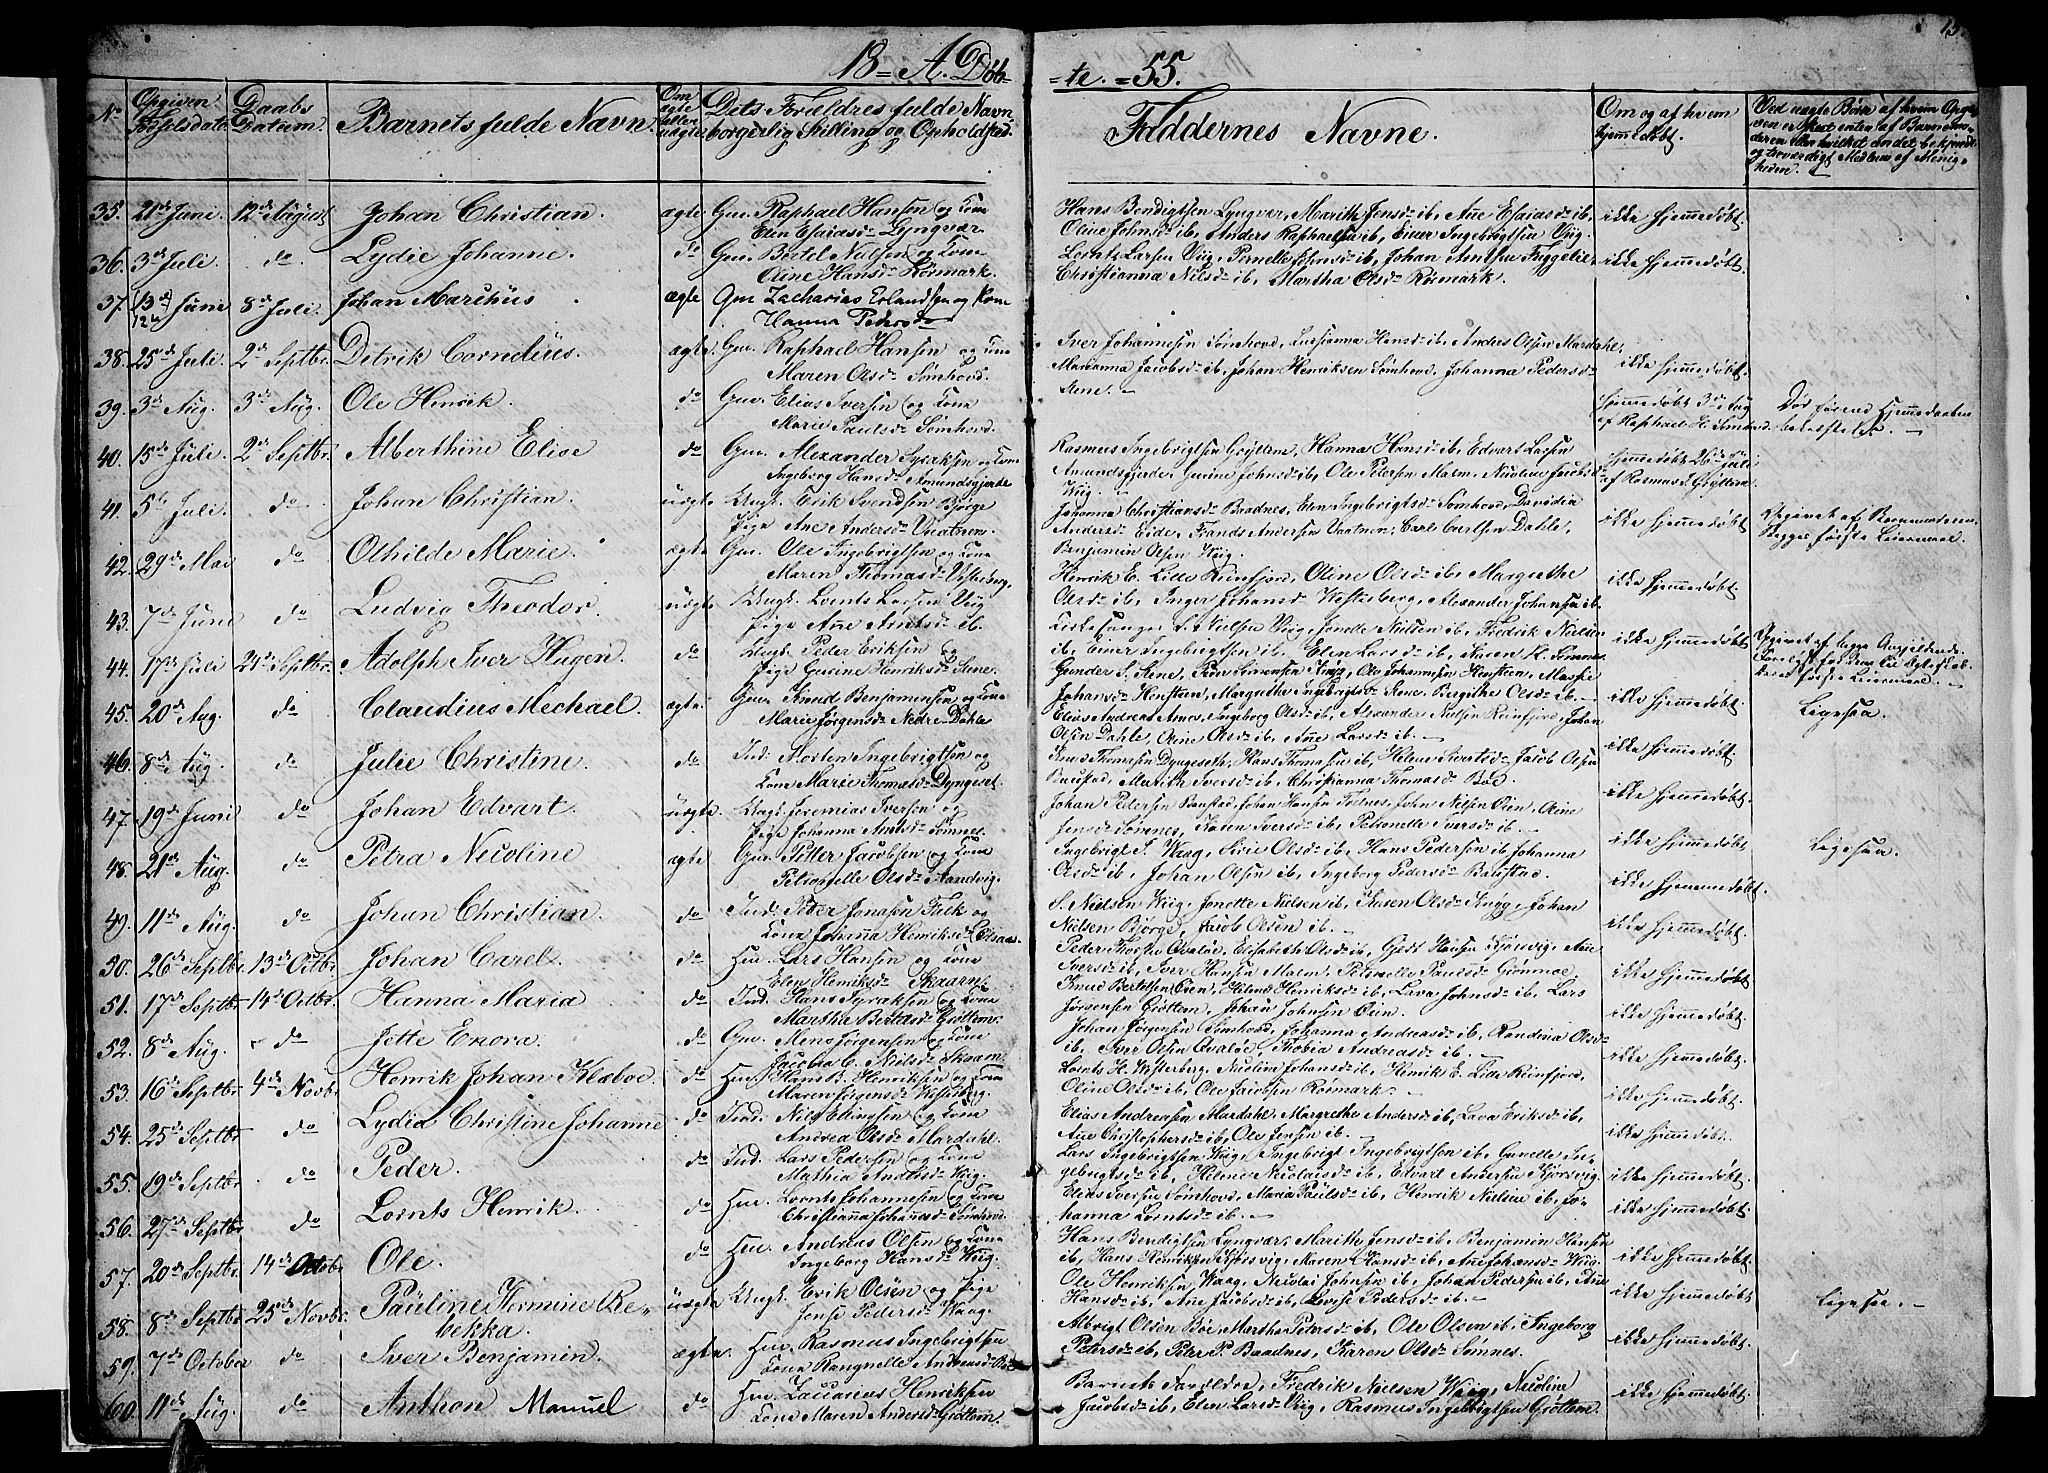 18 = A. Døb= =te. =55.
No
Opgiven Fødselsdato
Daabs Datum.
Barnets fulde Navn.
Om ægte eller uægte
Dets Forældres fulde Navn, borgerlig Stilling og Opholdsted.
Faddernes Navne.
Om og af hvem hjemmedøbt.
35. 21de Juni. 12de August Johan Christian. ægte. Gm. Raphael Hansen og Kone
Elen Esaiasd. Lyngvær
Hans Bendigtsen Lyngvær, Marith Jensd. ib, Ane Esaiasd. ib,
Oline Johnsd. ib, Anders Raphaelsen ib, Einer Ingebrigtsen Viig.
ikke hjemmedøbt.
36. 3de Juli. do. Lydie Johanne. do Gm. Bertel Nielsen og Kone
Oline Hansd. Rørmark.
Lornts Larsen Viig, Pernelle Johnsd. ib, Johan Antsen
Christianna Nilsd. ib, Martha Olsd. Rørmark.
ikke hjemmedøbt.
37. 13de Juni 8de Juli. Johan Marthus ægte Gm Zacharias Erlandsen og Kone
Hanna Petersd.
38. 25de Juli. 2de Septbr. Detrik Cornelius. ægte. Gm. Raphael Hansen og Kone
Maren Olsd. Sømhovd.
Iver Johannesen Sømhovd, Hansd. ib, Anders Olsen Mardahl,
Marianna Jacobsd. ib, Johan Henriksen Sømhovd, Johanna Pedersd.
Stene.
ikke hjemmedøbt.
39. 3de Aug. 3de Aug. Ole Henrik. do Gm. Elias Iversen og Kone
Marie Paulsd. Sømhovd.
hjemmedøbt 3de Aug
af Raphael H. Sømhovd
Død førend Hjemmedaaben
40. 15de Juli. 2de Septbr. Alberthine Elise do Gm. Alexander Syraksen og Kone
Ingeborg Hansd. Amundsgjerde
Rasmus Ingebrigtsen Grøttem, Hanna Hansd. ib, Edvart Larsen
Amundsgjerde, Gurine Johnsd. ib, Ole Petersen Malm, Nicoline Jacobsd.
Viig.
hjemmedøbt 26de Juli
af Rasmus I. Grøttem
41. 5te Juli. do. Johan Christian. uægte Ungk. Erik Svendsen Bjørge
Pige Ane Andersd. Vaatnen.
Johanna Christiansd. Baadnes, Elen Ingebrigtsd. Sømhovd, Davidia
Andersd. Eide, Frands Andersen Vaatnen, Carl Carlsen Dahle,
Benjamin Olsen Viig.
ikke hjemmedøbt
Opgivet af Barnemoderen.
Begges første Leiermaal.
42. 29de Mai do Othilde Marie. ægte Gm. Ole Ingebrigtsen og Kone
Maren Thomasd. Vesterberg.
Henrik E. Lille Reinfjord, Oline Olsd. ib, Margrethe
Olsd. ib, Inger Johansd. Vesterberg, Alexander Johansen ib.
ikke hjemmedøbt.
43. 7de Juni do Ludvig Theodor. uægte Ungk. Lornts Larsen Viig
Pige Ane Antsd. ib.
Kirkesanger S. Nielsen Viig, Jonette Nielsen ib, Fredrik Nielsen
ib, Einer Ingebrigtsen ib, Elen Larsd. ib, Maren H. Sømnes
ikke hjemmedøbt.
44. 17de Juli 24de Septbr. Adolph Iver Hagen. do Ungk. Peder Eriksen og
Pige Gurine Henriksd. Stene.
Gunder S. Stene, Siemensen Kryg, Ole Johannesen Henstien,
Johansd. Henstien, Margrethe Ingebrigtsd. Stene, Bergithe Olsd. ib.
45. 20de Aug. do Claudius Mechael. ægte. Gm. Knud Benjaminsen og Kone
Marie Jørgensd. Nedre-Dahle
Elias Andreas Amos, Ingeborg Olsd. ib, Alexander Nielsen Reinfjord, Johan
Olsen Dahle, Oline Olsd. ib, Ane Larsd. ib.
ikke hjemmedøbt.
Ligesaa.
46. 8de Aug. do Julie Christine. do Ind. Morten Ingebrigtsen og
Kone Marie Thomasd. Dyngeset.
Jens Thomasen Dyngeseth, Hans Thomasen ib, Helene Jacob Olsen
Baustad, Marith Iversd. ib, Christianna Thomasd. Bøe.
ikke hjemmedøbt.
47. 19de Juni do Johan Edvart. uægte. Ungk. Jeremias Iversen og
Pige Johanna Antsd. Sømnes.
Johan Pedersen Baustad, Johan Hansen Tølnes, John Nilsen Øien, Oline
Jensd. Sømnes, Karen Iversd. ib, Petronelle Iversd. ib.
ikke hjemmedøbt.
48. 21de Aug. do Petra Nicoline ægte Gm. Petter Jacobsen og Kone
Petronelle Olsd. Sandvig.
Ingebrigt S. Waag, Sirie Olsd. ib, Hans Pedersen ib, Johanna
Olsd. ib, Johan Olsen ib, Ingeborg Pedersd. Baustad.
ikke hjemmedøbt.
Ligesaa.
49. 11de Aug. do Johan Christian. do Ind. Peter Jonasen Falk og
Kone Johanna Henriksd.
S. Nielsen Wiig, Jonette Nielsen ib, Karen Olsd. Kryg, Johan
Nielsen Bjørge, Jacob Olsen ib.
ikke hjemmedøbt.
50. 26de Septbr. 13de Octbr. Johan Carel. do Hm. Lars Hansen og Kone
Elen Henriksd. Skaarn
Peder Thorsen Qvaløe, Elisabeth Olsd. ib, Gjert Hansen Kjørsvig, Ane
Iversd. ib, Iver Hansen Malm, Petronelle Paulsd. Grønmoe.
ikke hjemmedøbt.
51. 17de Septbr. 14de Octbr. Hanna Maria do Ind. Hans Syraksen og Kone
Martha Bertelsd. Grøttem.
Knud Bertelsen Øien, Helene Henriksd. ib, Lava Johnsd. ib, Lars
Jørgensen Grøttem, Johan Johnsen Øien.
ikke hjemmedøbt.
52. 8de Aug. do Jette Enora. do Gm. Mons Jørgensen og Kone
Jacobia C. Nielsd. Skaarn
Johan Jørgensen Sømhovd, Johanna Andreasd. ib, Randina Olsd.
ib, Iver Olsen Qvaløe, Thobia Andreasd. ib.
ikke hjemmedøbt.
53. 16de Septbr. 4de Novbr. Henrik Johan Klæboe. do Hm. Hans B. Henriksen og Kone
Maren Jørgensd. Vesterberg.
Lornts H. Westerberg, Nicoline Johansd. ib, Henrik E. Lille Reinfjord,
Oline Olsd. ib, Ole Jacobsen Rørmark.
ikke hjemmedøbt.
54. 25de Septbr. do Lydia Christine Johanne do Ind. Nils Ellingsen og Kone
Andrea Olsd. Mardahl.
Elias Andreasen Mardahl, Margrethe Andersd. ib, Lava Eriksd. ib,
Ane Christophersd. ib, Ole Jensen ib.
ikke hjemmedøbt.
55. 19de Septbr. do Peder. do Ind. Lars Pedersen og Kone
Mathia Andersd. Wiig.
Lars Ingebrigtsen Wiig, Ingebrigt Ingebrigtsen ib, Gunelle In-
gebrigtsd. ib, Helene Nicolaisd. ib, Edvart Andersen Kjørsvig
ikke hjemmedøbt.
56. 27de Septbr. do Lornts Henrik. do Hm. Lornts Johannesen og Kone
Christianna Johansd. Sømhovd.
Elias Iversen Sømhovd, Maria Paulsd. ib, Henrik Nielsen ib, Jo-
hanna Lorntsd. ib.
ikke hjemmedøbt.
57. 20de Septbr. 14de Octobr. Ole. do Hm. Andreas Olsen og Kone
Ingeborg Hansd. Wiig.
Hans Bendigtsen Lyngvær, Marith Jensd. ib, Benjamin Hansen
ib, Hans Henriksen Kjørsvig, Maren Hansd. ib, Ane Johansd. Wiig.
ikke hjemmedøbt.
58. 8de Septbr. 25de Novbr. Pauline Hermine Re-
bekka. uægte Ungk. Erik Olsen og Pige
Jonse Pedersd. Waag.
Ole Henriksen Waag, Nicolai Johnsen ib, Johan Pedersen ib, Ane
Hansd. ib, Ane Jacobsd. ib, Lovise Pedersd. ib.
ikke hjemmedøbt.
Ligesaa.
59. 7de October do Iver Benjamin. ægte. Hm. Rasmus Ingebrigtsen
Kone Rangnelle Andreasd. Bøe
Albrigt Olsen Bøe, Martha Petersd. ib, Ole Olsen ib, Ingeborg
Petersd. ib, Peter P. Baadnes, Karen Olsd. Sømnes.
ikke hjemmedøbt.
60. 11de Aug. do Anthon Manuel do Hm. Zacarias Henriksen
Kone Maren Andersd. Grøttem.
Barnets Forældre, Fredrik Nielsen Wiig, Nicoline
Jacobsd. ib, Elen Larsd. Viig, Rasmus Ingebrigtsen Grøttem.
ikke hjemmedøbt.